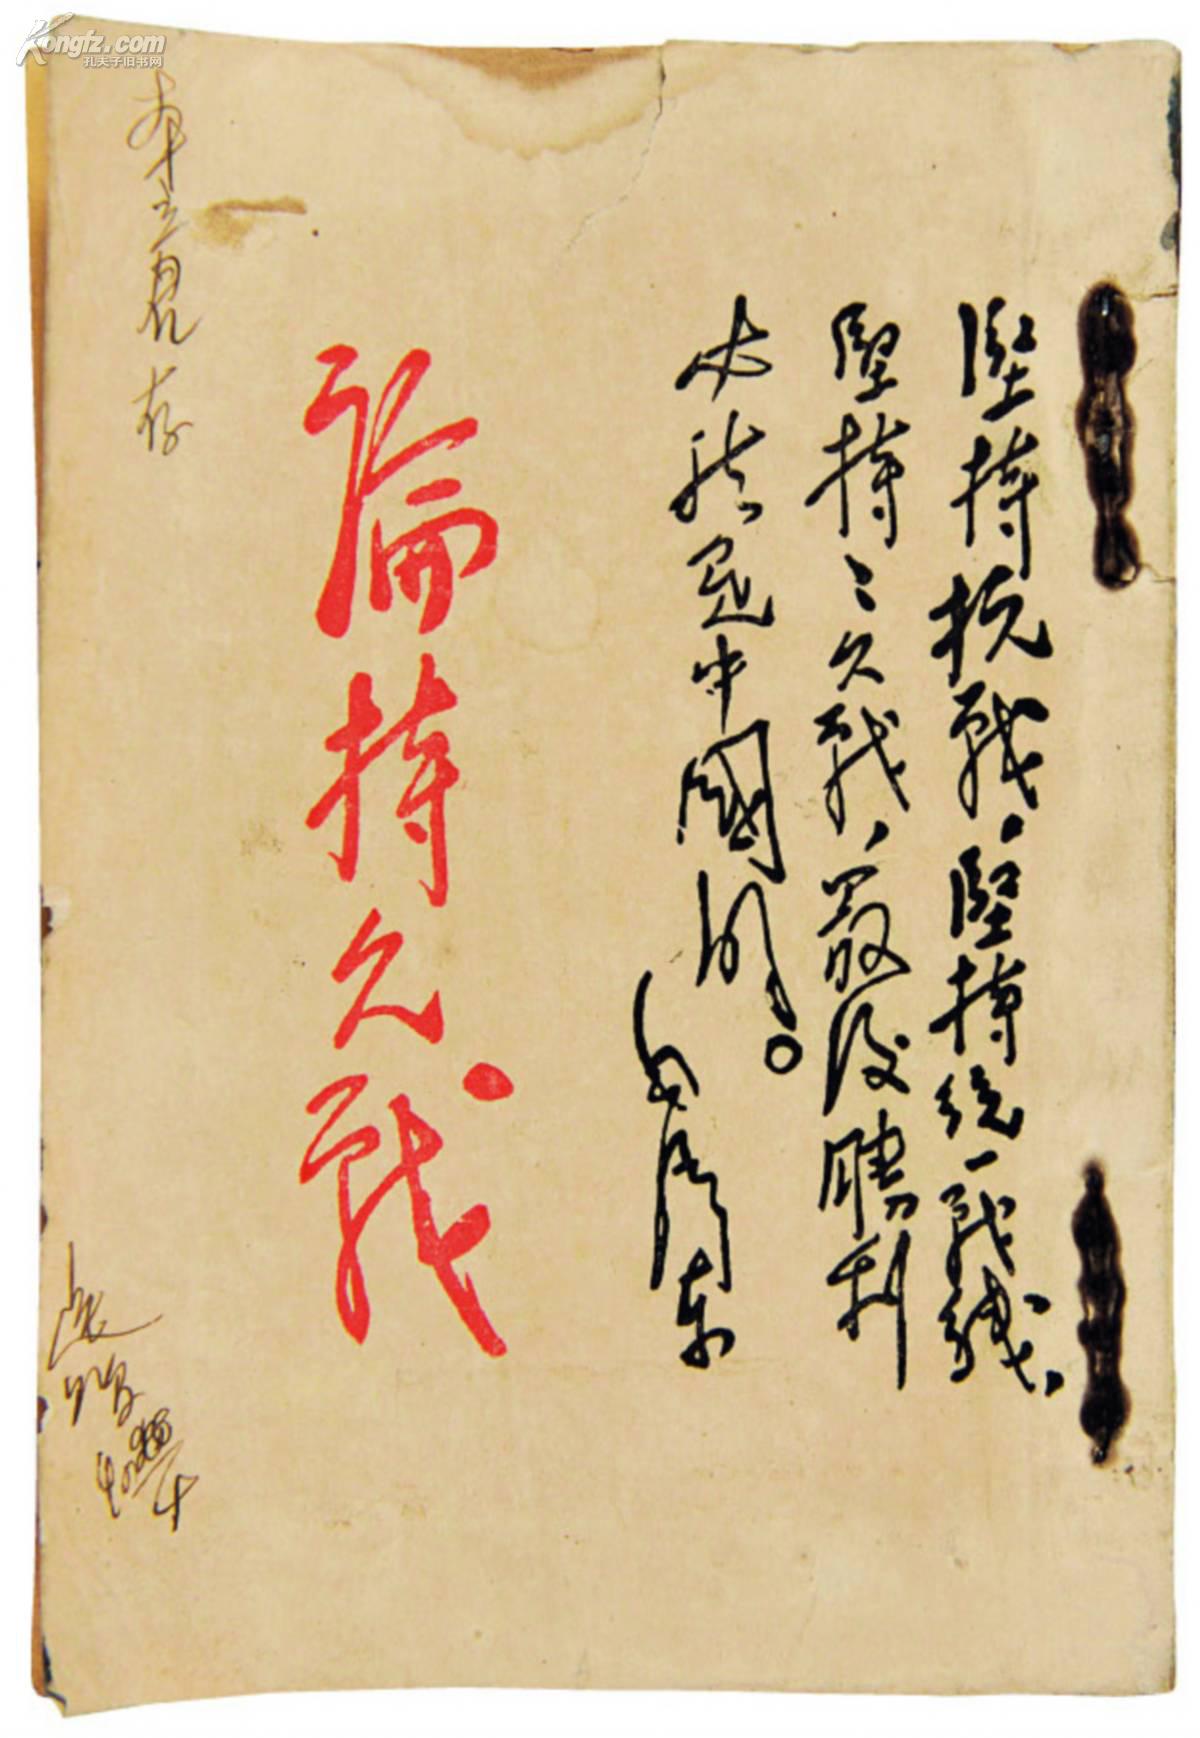 Kongfz.com
孔夫子旧书网
堅持抗戰、堅持統一戰綫、
堅持〻久戰、最後勝利
必然是中國的。
毛澤東
論持久戰